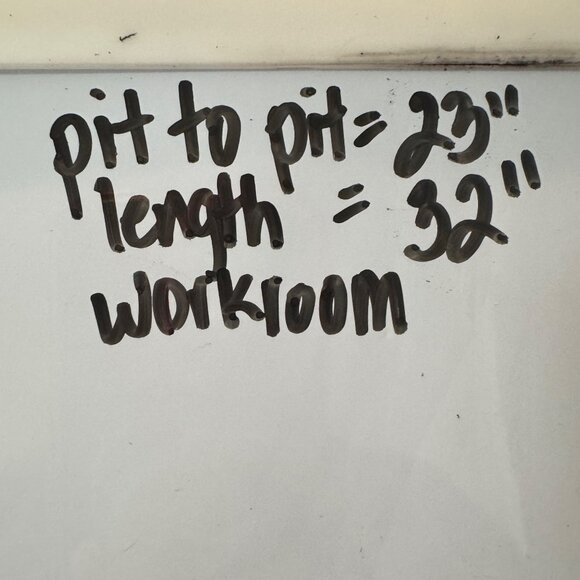 pit to pit = 23"
length = 32"
workroom